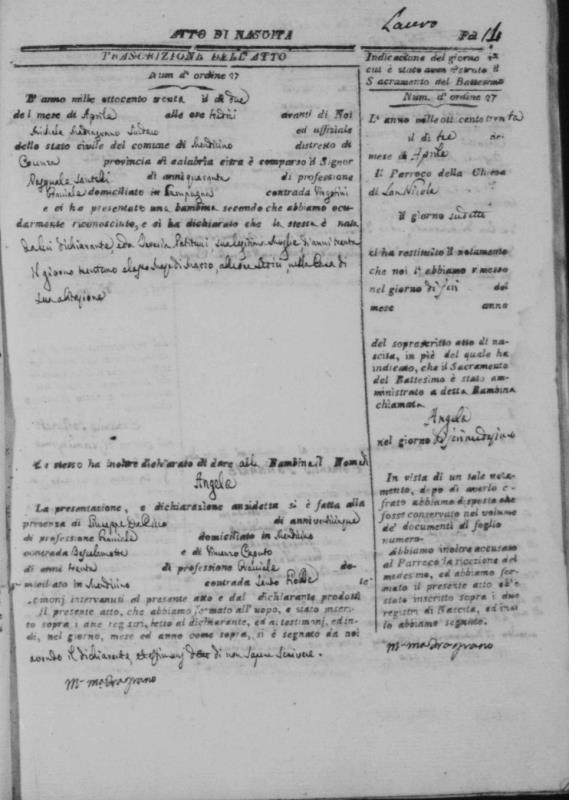 Lauro
ATTO DI NASCITA
TRASCRIZIONE DELL'ATTO
Num d'ordine 27
L'anno mille ottocento trenta il di tre
del mese di Aprile alle ore tredici avanti di Noi
Michele Madragrano Sindaco ed uffiziale
dello stato civile del comune di Mendicino distretto di
Cosenza provincia di calabria citra è comparso il Signor
Pasquale di anni quaranta di professione
domiciliato in Campagna contrada
e ci ha presentato una bambina secondo che abbiamo ocu-
darmente riconosciuto, e si ha dichiarato che la stessa è nata
da lui dichiarante, e da sua legittima Moglie di anni trenta
il giorno trentuno di Marzo, alle ore, nella Casa di
sua abitazione
Lo stesso ha inoltre dichiarato di dare alla Bambina il Nome di
Angela
La presentazione, e dichiarazione anzidetta si è fatta alla
presenza di Giuseppe di anni
di professione domiciliato in Mendicino
contrada e di Vincenzo Caputo
di anni trenta di professione do-
miciliato in Mendicino contrada te-
stimonj intervenuti al presente atto e dal dichiarante prodotti
Il presente atto, che abbiamo formato all'uopo, e stato inserit-
to sopra i due registri, letto al dichiarante, ed ai testimonj, ed in-
di, nel giorno, mese ed anno come sopra, si è segnato da noi
avendo il dichiarante, e testimonj detto di non sapere scrivere.
Indicazione del giorno in
cui è stato amministrato il
Sacramento del Battesimo
Num. d'ordine 27
L'anno mille ottocento trenta
il di tre del
mese di Aprile
Il Parroco della Chiesa
di San Nicola
il giorno sudetto
ci ha restituito il notamento
che noi l'abbiamo rimesso
nel giorno di jeri del
mese anno
del soprascritto atto di na-
scita, in piè del quale ha
indicato, che il Sacramento
del Battesimo è stato am-
ministrato a detta Bambina
chiamata
Angela
nel giorno di jeri medesimo
In vista di un tale nota-
mento, dopo di averlo ci-
frato abbiamo disposto che
fosse conservato nel volume
de' documenti al foglio
numero.
Abbiamo inoltre accusato
al Parroco la ricezione del
medesimo, ed abbiamo for-
mato il presente atto ch'è
stato inscritto sopra i due
registri di Nascita, ed indi
lo abbiamo segnato.